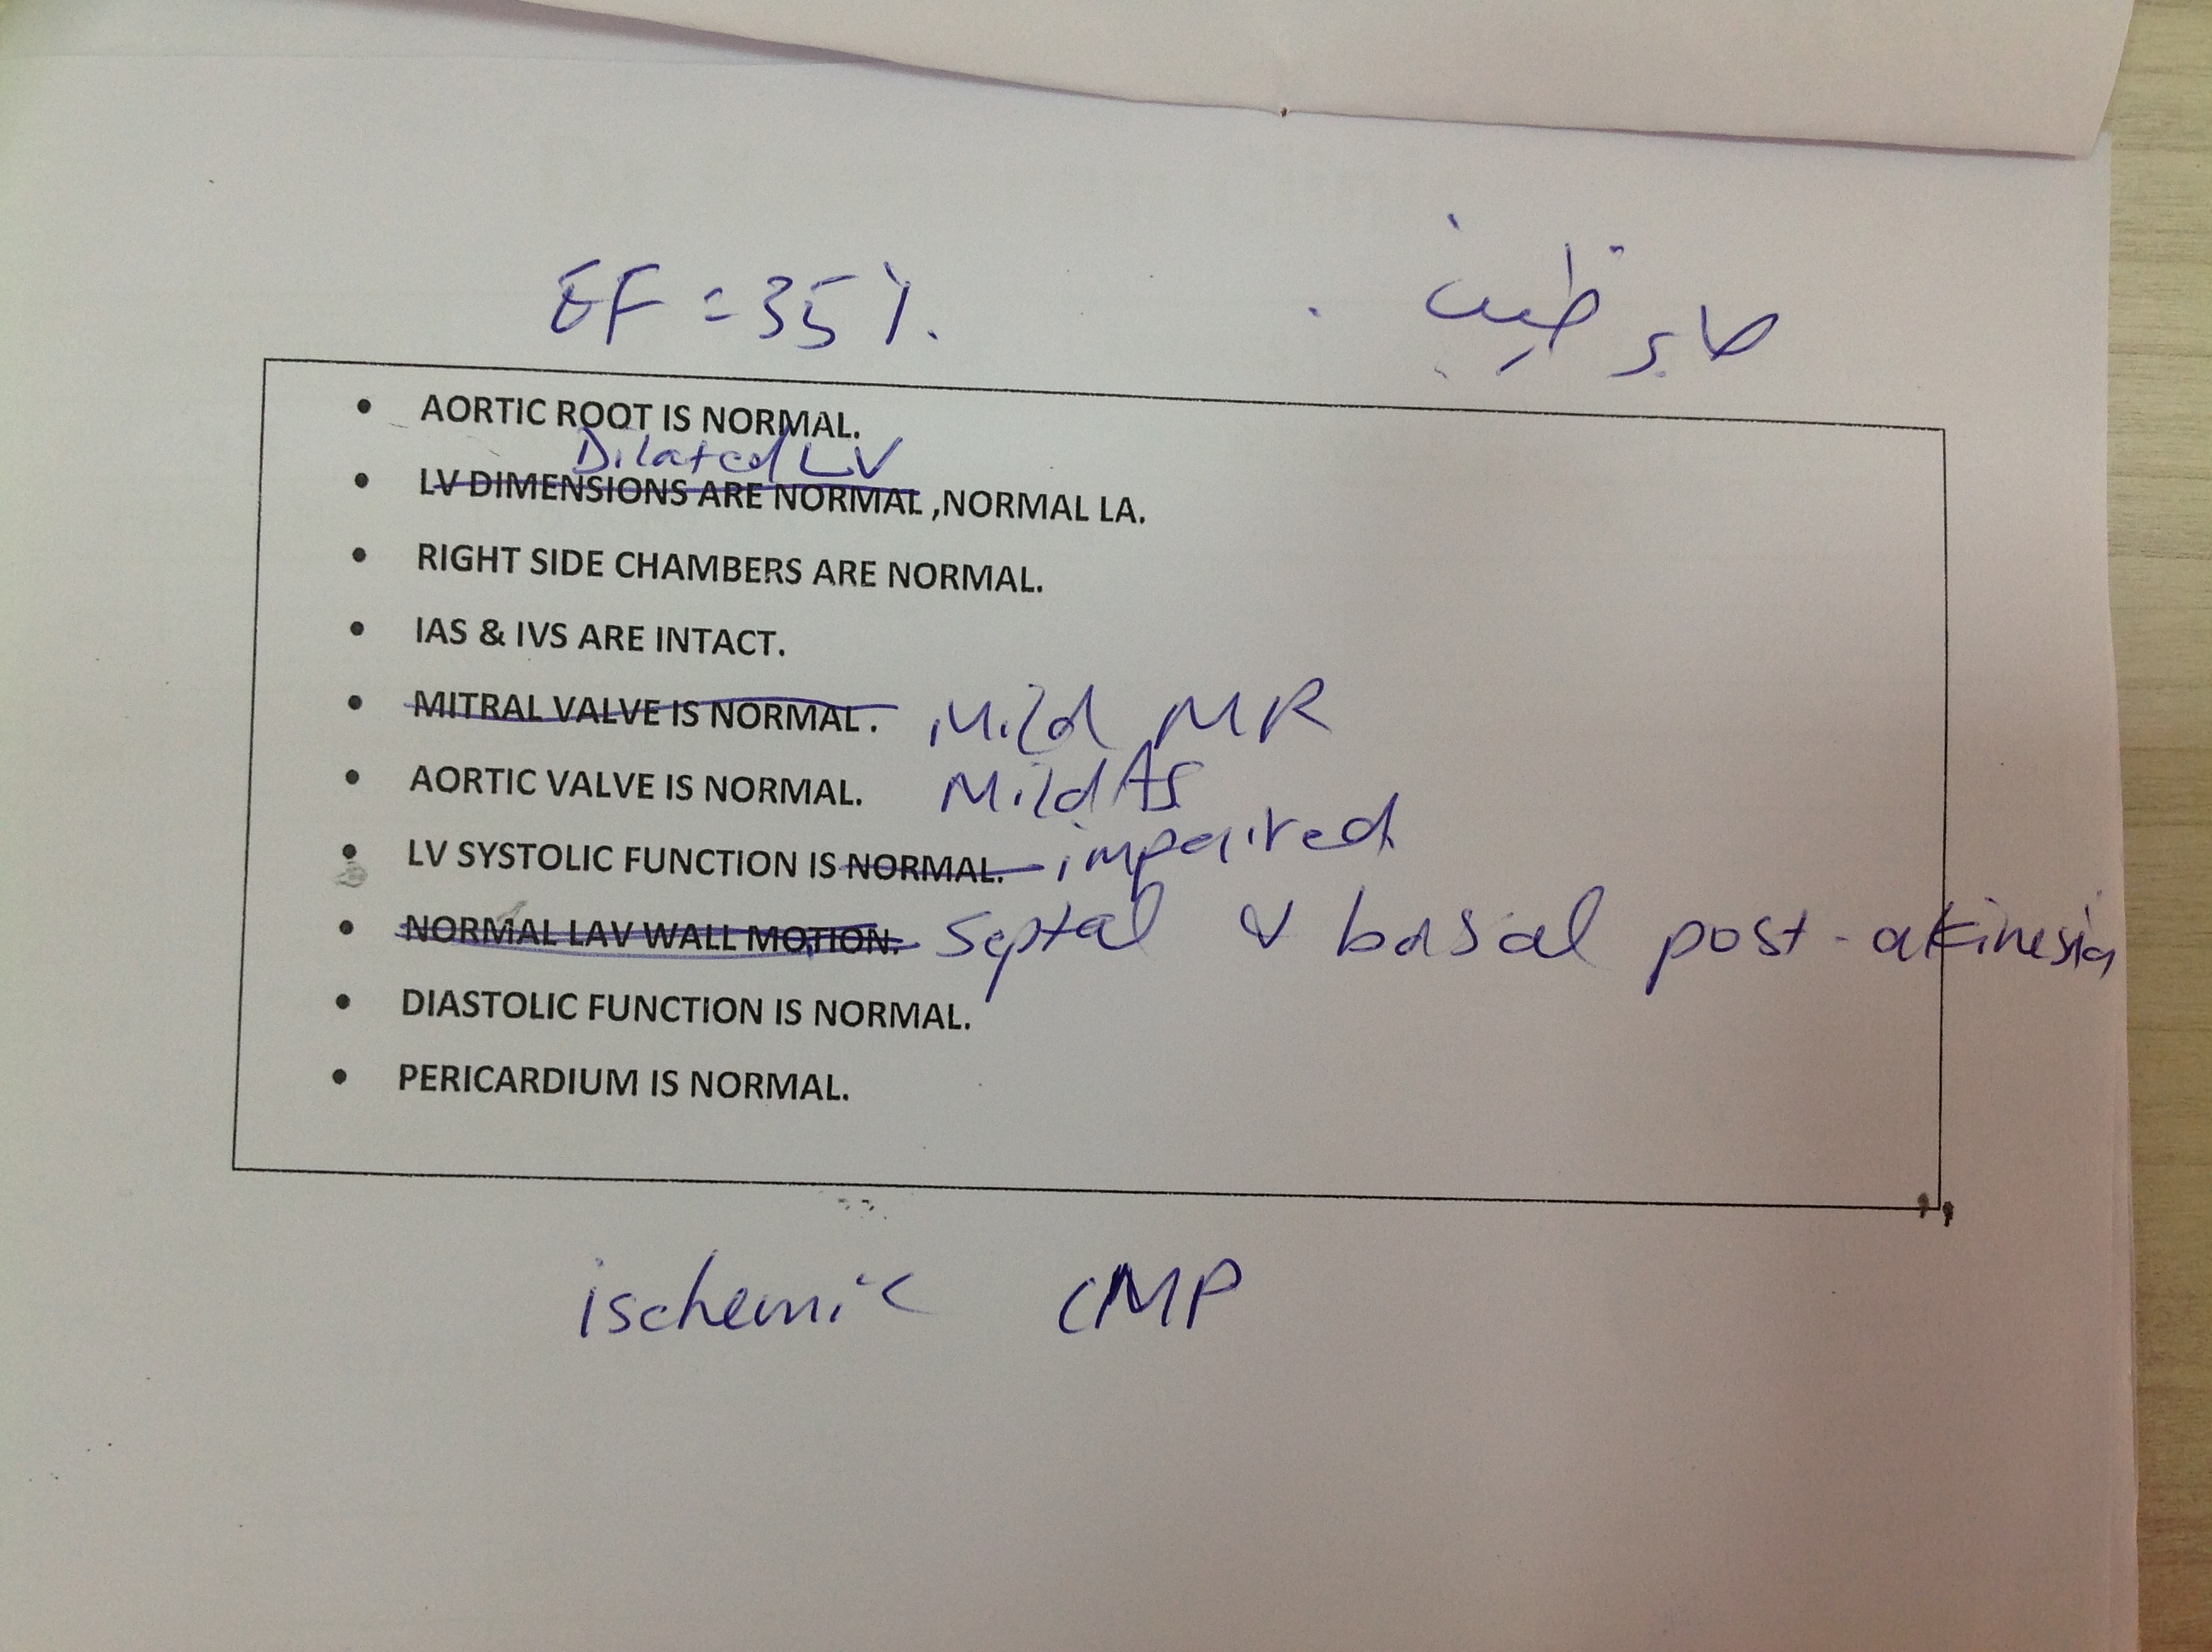 EF = 35 %.
• AORTIC ROOT IS NORMAL.
Dilated LV
• LV DIMENSIONS ARE NORMAL ,NORMAL LA.
• RIGHT SIDE CHAMBERS ARE NORMAL.
• IAS & IVS ARE INTACT.
• MITRAL VALVE IS NORMAL. Mild MR
• AORTIC VALVE IS NORMAL. Mild AS
• LV SYSTOLIC FUNCTION IS NORMAL. impaired
• NORMAL LAV WALL MOTION. Septal & basal post - akinesia
• DIASTOLIC FUNCTION IS NORMAL.
• PERICARDIUM IS NORMAL.
ischemic CMP